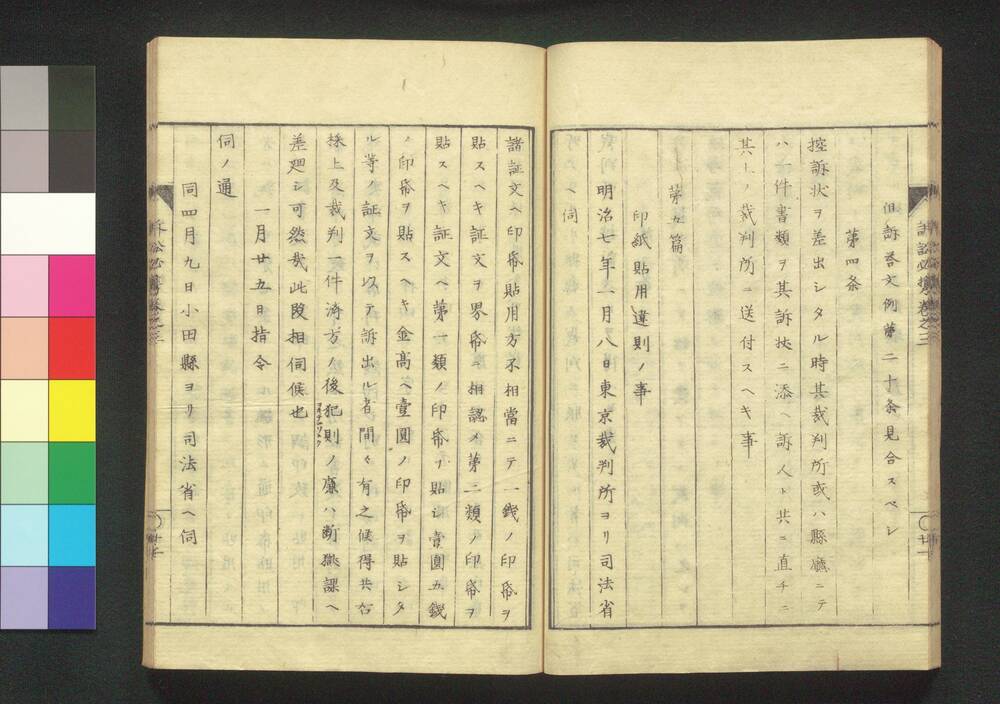 訴訟必携巻之三
廿一
但訴答文例第二十条見合スベシ
第四条
控訴状ヲ差出シタル時其裁判所或ハ縣廳ニテ
ハ一件書類ヲ其訴状ニ添ヘ訴人ト共ニ直チニ
其上ノ裁判所ニ送付スヘキ事
第五篇
印紙貼用違則ノ事
明治七年一月八日東京裁判所ヨリ司法省
ヘ伺
諸証文ヘ印帋貼用方不相當ニテ一銭ノ印帋ヲ
貼スヘキ証文ヲ界帋ニ相認メ第二類ノ印帋ヲ
貼スヘキ証文ヘ第一類ノ印帋ヲ貼シ壹圓五銭
ノ印帋ヲ貼スヘキ金高ヘ壹圓ノ印帋ヲ貼シタ
ル等ノ証文ヲ以テ訴出ル者間々有之候得共右
採上及裁判一件済方ノ後犯則ノ廉ハ断獄課ヘ
差廻シ可然哉此段相伺候也
一月廿五日指令
伺ノ通
同四月九日小田縣ヨリ司法省ヘ伺
訴訟必携巻之三